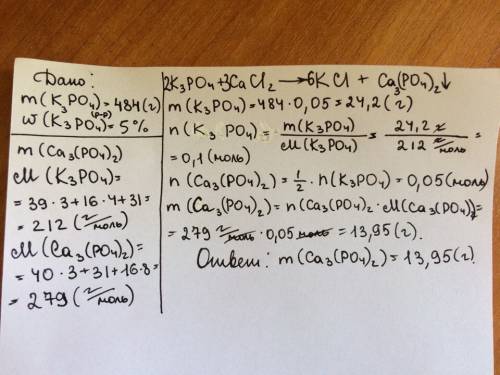 Дано:
m(K3PO4)=484(г)
w(K3PO4)(р-р)=5%
m(Ca3(PO4)2)
M(K3PO4)=
=39·3+16·4+31=
=212(г/моль)
M(Ca3(PO4)2)=
=40·3+31+16·8=
=279(г/моль)
2K3PO4+3CaCl2→6KCl+Ca3(PO4)2↓
m(K3PO4)=484·0,05=24,2(г)
n(K3PO4)=m(K3PO4)/M(K3PO4)=24,2г/212г/моль=
=0,1(моль)
n(Ca3(PO4)2)=1/2·n(K3PO4)=0,05(моль)
m(Ca3(PO4)2)=n(Ca3(PO4)2·M(Ca3(PO4)2)=
=279г/моль·0,05моль=13,95(г).
Ответ: m(Ca3(PO4)2)=13,95(г).